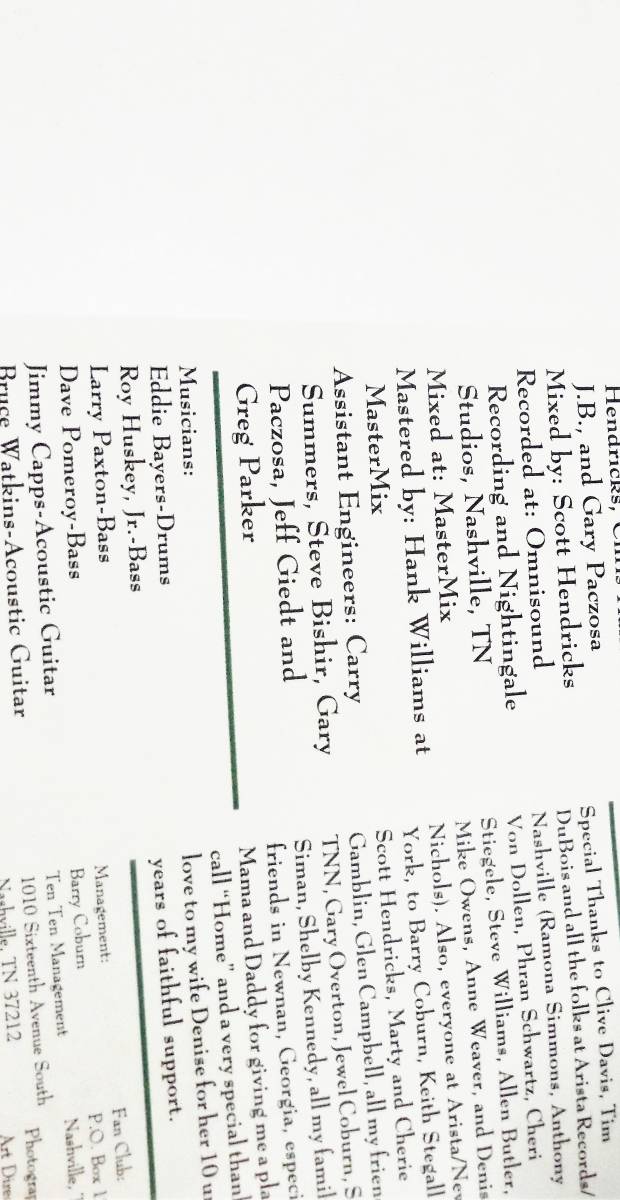 Hendricks,
J.B., and Gary Paczosa
Mixed by: Scott Hendricks
Recorded at: Omnisound
Recording and Nightingale
Studios, Nashville, TN
Mixed at: MasterMix
Mastered by: Hank Williams at
MasterMix
Assistant Engineers: Carry
Summers, Steve Bishir, Gary
Paczosa, Jeff Giedt and
Greg Parker
Musicians:
Eddie Bayers-Drums
Roy Huskey, Jr.-Bass
Larry Paxton-Bass
Dave Pomeroy-Bass
Jimmy Capps-Acoustic Guitar
Bruce Watkins-Acoustic Guitar
Special Thanks to Clive Davis, Tim
DuBois and all the folks at Arista Records/
Nashville (Ramona Simmons, Anthony
Von Dollen, Phran Schwartz, Cheri
Stiegele, Steve Williams, Allen Butler,
Mike Owens, Anne Weaver, and Denis
Nichols). Also, everyone at Arista/Ne
York, to Barry Coburn, Keith Stegall
Scott Hendricks, Marty and Cherie
Gamblin, Glen Campbell, all my frien
TNN, Gary Overton, Jewel Coburn, S
Siman, Shelby Kennedy, all my famil
friends in Newnan, Georgia, especi
Mama and Daddy for giving me a pla
call "Home" and a very special than
love to my wife Denise for her 10 u
years of faithful support.
Management:
Barry Coburn
Ten Ten Management
1010 Sixteenth Avenue South
Nashville, TN 37212
Fan Club:
P.O. Box 1
Nashville,
Photograp
Art Dire